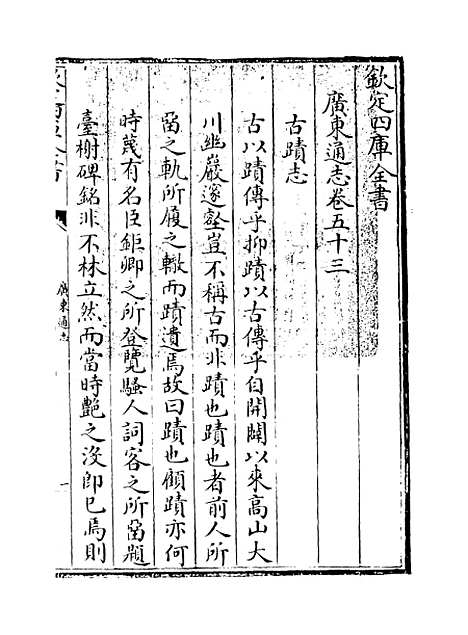 欽定四庫全書
廣東通志卷五十三
古蹟志
古以蹟傳乎抑蹟以古傳乎自開闢以來高山大
川幽巖邃壑豈不稱古而非蹟也蹟也者前人所
留之軌所履之轍而蹟遺焉故曰蹟也顧蹟亦何
時蔑有名臣鉅卿之所登覽騷人詞客之所留題
臺榭碑銘非不林立然而當時艷之沒即已焉則
廣東通志
一